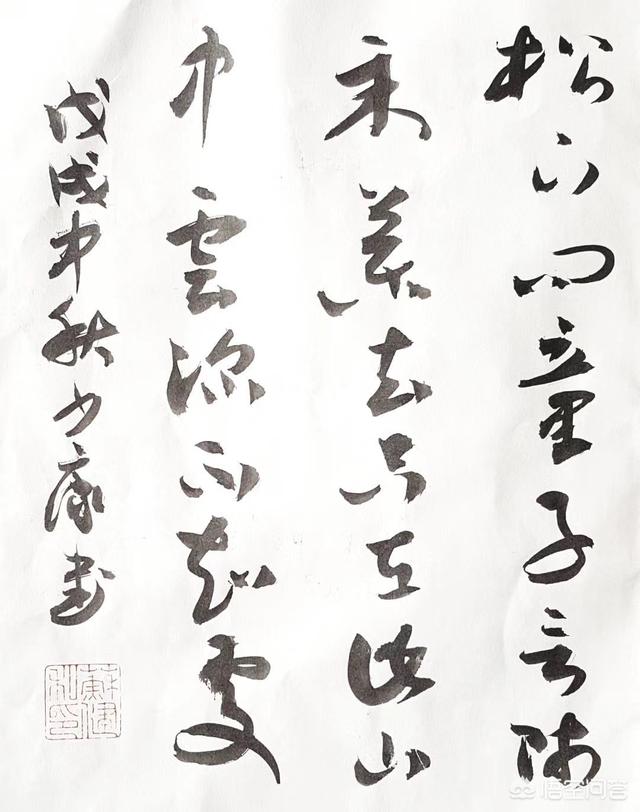 松下問童子言師
采藥去只在此山
中雲深不知處
戊戌中秋少康書
悟空问答